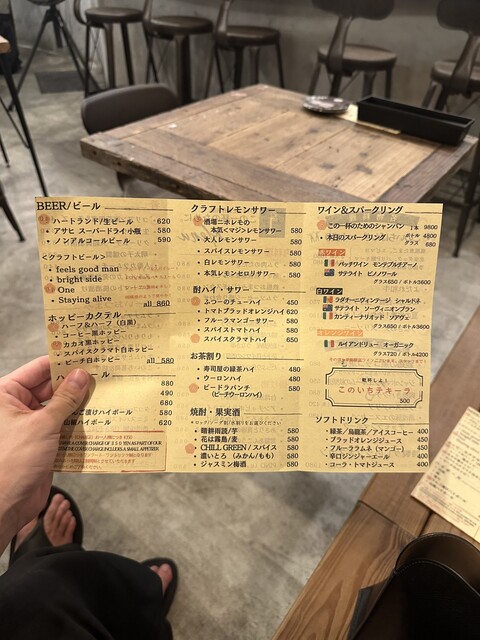 BEER/ビール
ハートランド/生ビール 620
アサヒ スーパードライ小瓶 590
ノンアルコールビール 590
<クラフトビール>
feels good man
bright side
One
Staying alive
all 860
ホッピーカクテル
ハーフ&ハーフ (白黒)
コーヒー黒ホッピー
カカオ黒ホッピー
スパイスクラマト白ホッピー
ピーチ白ホッピー
all 580
880
490
680
ご漬けハイボール 580
ハイボール 620
クラフトレモンサワー
酒場ニホレモの
本気<マジ>レモンサワー 580
大人レモンサワー 580
スパイスレモンサワー 580
白レモンサワー 580
本気レモンセロリサワー 580
酎ハイ・サワー
ふつーのチューハイ 450
トマトブラッドオレンジハイ 620
フルーラマンゴーサワー 580
スパイストマトハイ 580
スパイスクラマトハイ 650
お茶割り
寿司屋の緑茶ハイ 480
ウーロンハイ 480
ピードラパンチ 580
(ピーチウーロンハイ)
焼酎・果実酒
晴耕雨読/芋 580
花は霧島/麦 580
CHILL GREEN/スパイス 580
濃いとろ (みかん/もも) 580
ジャスミン梅酒 580
ワイン&スパークリング
この一杯のためのシャンパン 1本 9800
本日のスパークリング ボトル 4800
グラス 680
赤ワイン
バッチワイン モンテプルチアーノ
サテライト ピノノワール
グラス650/ボトル3600
白ワイン
ラダチーニヴィンテージ シャルドネ
サテライト ソーヴィニオンブラン
カンティーナリオンド ソアヴェ
グラス650/ボトル3600
オレンジワイン
ルイアンドリュー オーガニック
グラス720/ボトル4200
乾杯しよ!
このいちテキーラ
500
ソフトドリンク
緑茶/烏龍茶/アイスコーヒー 400
ブラッドオレンジジュース 450
フルーララムネ (マンゴー) 450
辛口ジンジャーエール 400
コーラ・トマトジュース 400